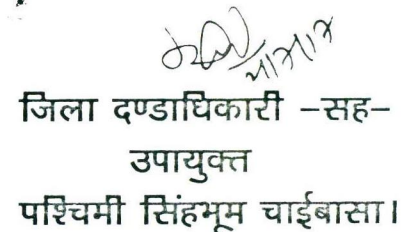 जिला दण्डाधिकारी –सह–
उपायुक्त
पश्चिमी सिंहभूम चाईबासा।